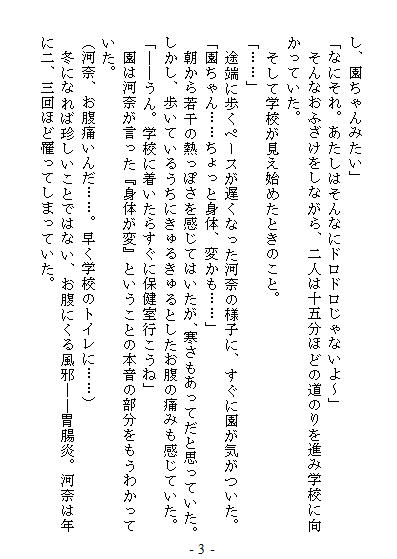 し、園ちゃんみたい」
「なにそれ。あたしはそんなにドロドロじゃないよ～」
そんなおふざけをしながら、二人は十五分ほどの道のりを進み学校に向
かっていた。
そして学校が見え始めたときのこと。
「……」
途端に歩くペースが遅くなった河奈の様子に、すぐに園が気がついた。
「園ちゃん……ちょっと身体、変かも……」
朝から若干の熱っぽさを感じてはいたが、寒さもあってだと思っていた。
しかし、歩いているうちにきゅるきゅるとしたお腹の痛みも感じていた。
「――うん。学校に着いたらすぐに保健室行こうね」
園は河奈が言った『身体が変』ということの本音の部分をもうわかって
いた。
（河奈、お腹痛いんだ……。早く学校のトイレに……）
冬になれば珍しいことではない、お腹にくる風邪――胃腸炎。河奈は年
に二、三回ほど罹ってしまっていた。
- 3 -